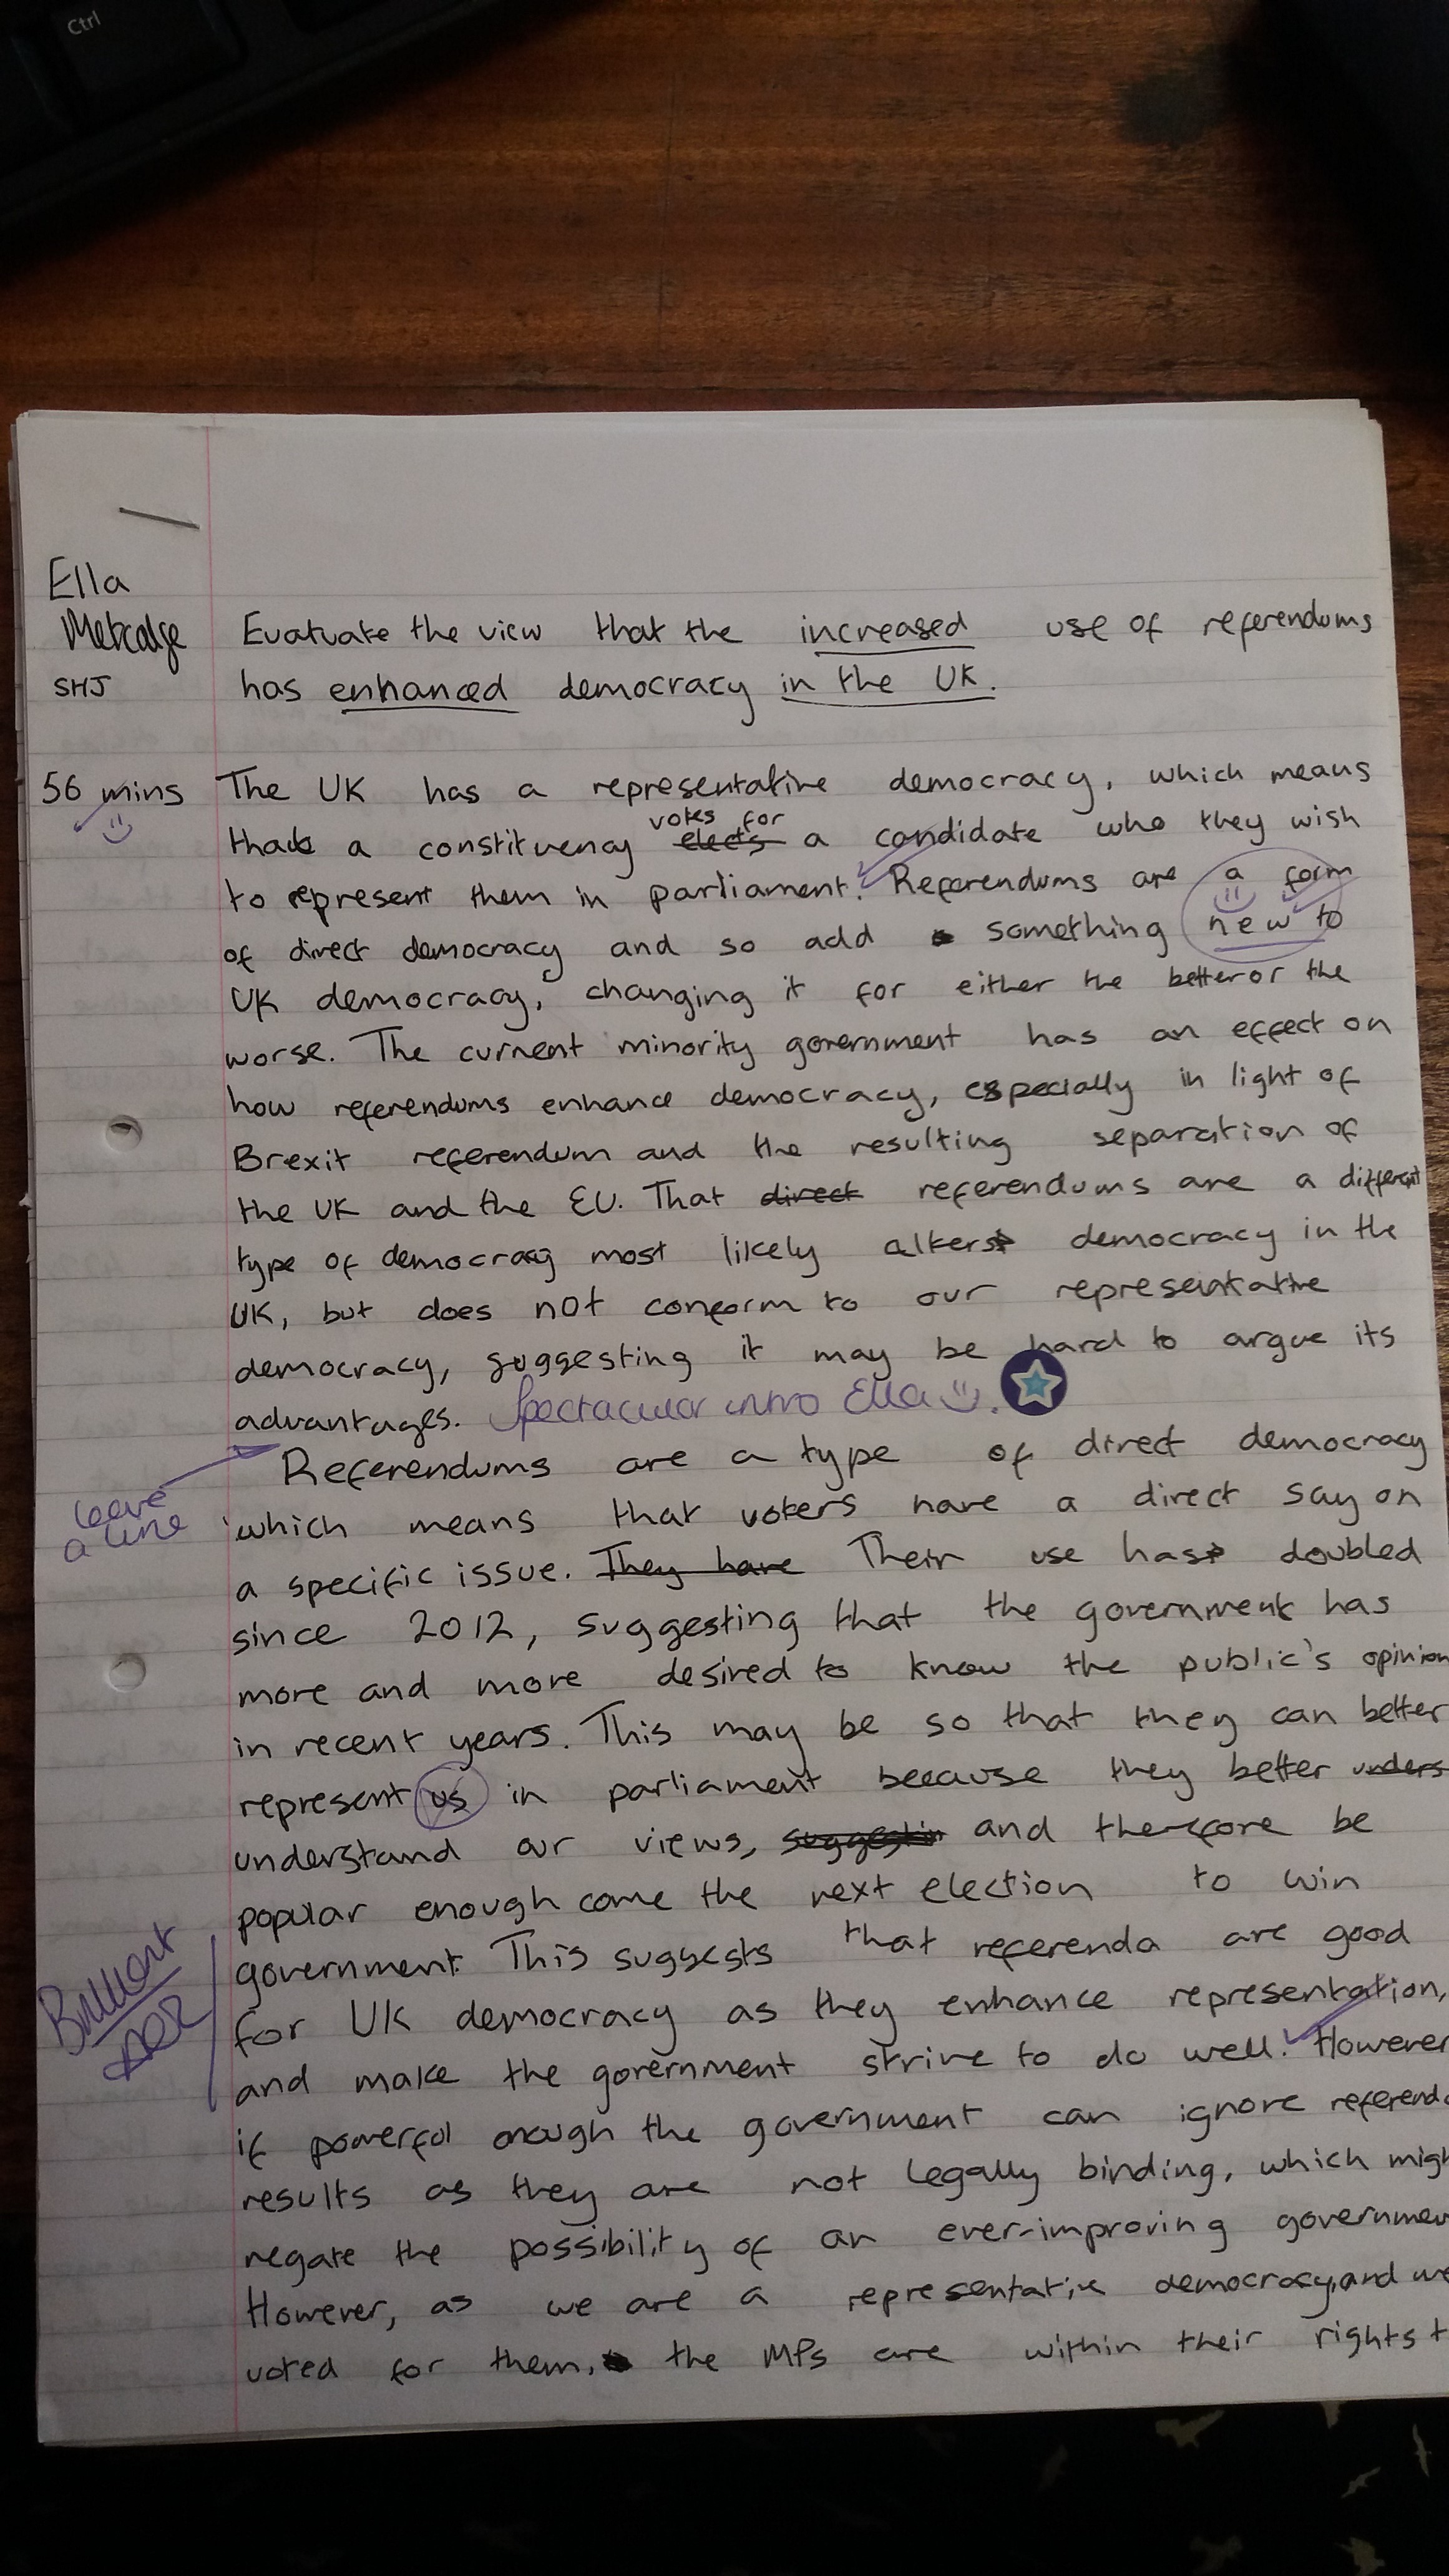 Ctrl
Ella
Metcalfe
SHJ
Evaluate the view that the increased use of referendums
has enhanced democracy in the UK.
56 mins
The UK has a representative democracy, which means
that a constituency votes for elects a candidate who they wish
to represent them in parliament. Referendums are a form
of direct democracy and so add something new to
UK democracy, changing it for either the better or the
worse. The current minority government has an effect on
how referendums enhance democracy, especially in light of
Brexit referendum and the resulting separation of
the UK and the EU. That direct referendums are a different
type of democracy most likely alters democracy in the
UK, but does not conform to our representative
democracy, suggesting it may be hard to argue its
advantages. Spectacular intro Ella
leave
a line
Referendums are a type of direct democracy
which means that voters have a direct say on
a specific issue. They have Their use has doubled
since 2012, suggesting that the government has
more and more desired to know the public's opinion
in recent years. This may be so that they can better
represent us in parliament because they better unders
understand our views, suggestin and therefore be
popular enough come the next election to win
government. This suggests that referenda are good
Brilliant
for UK democracy as they enhance representation,
and make the government strive to do well. However
if powerful enough the government can ignore referenda
results as they are not legally binding, which migh
negate the possibility of an ever-improving governmen
However, as we are a representative democracy, and we
voted for them, the MPs are within their rights t